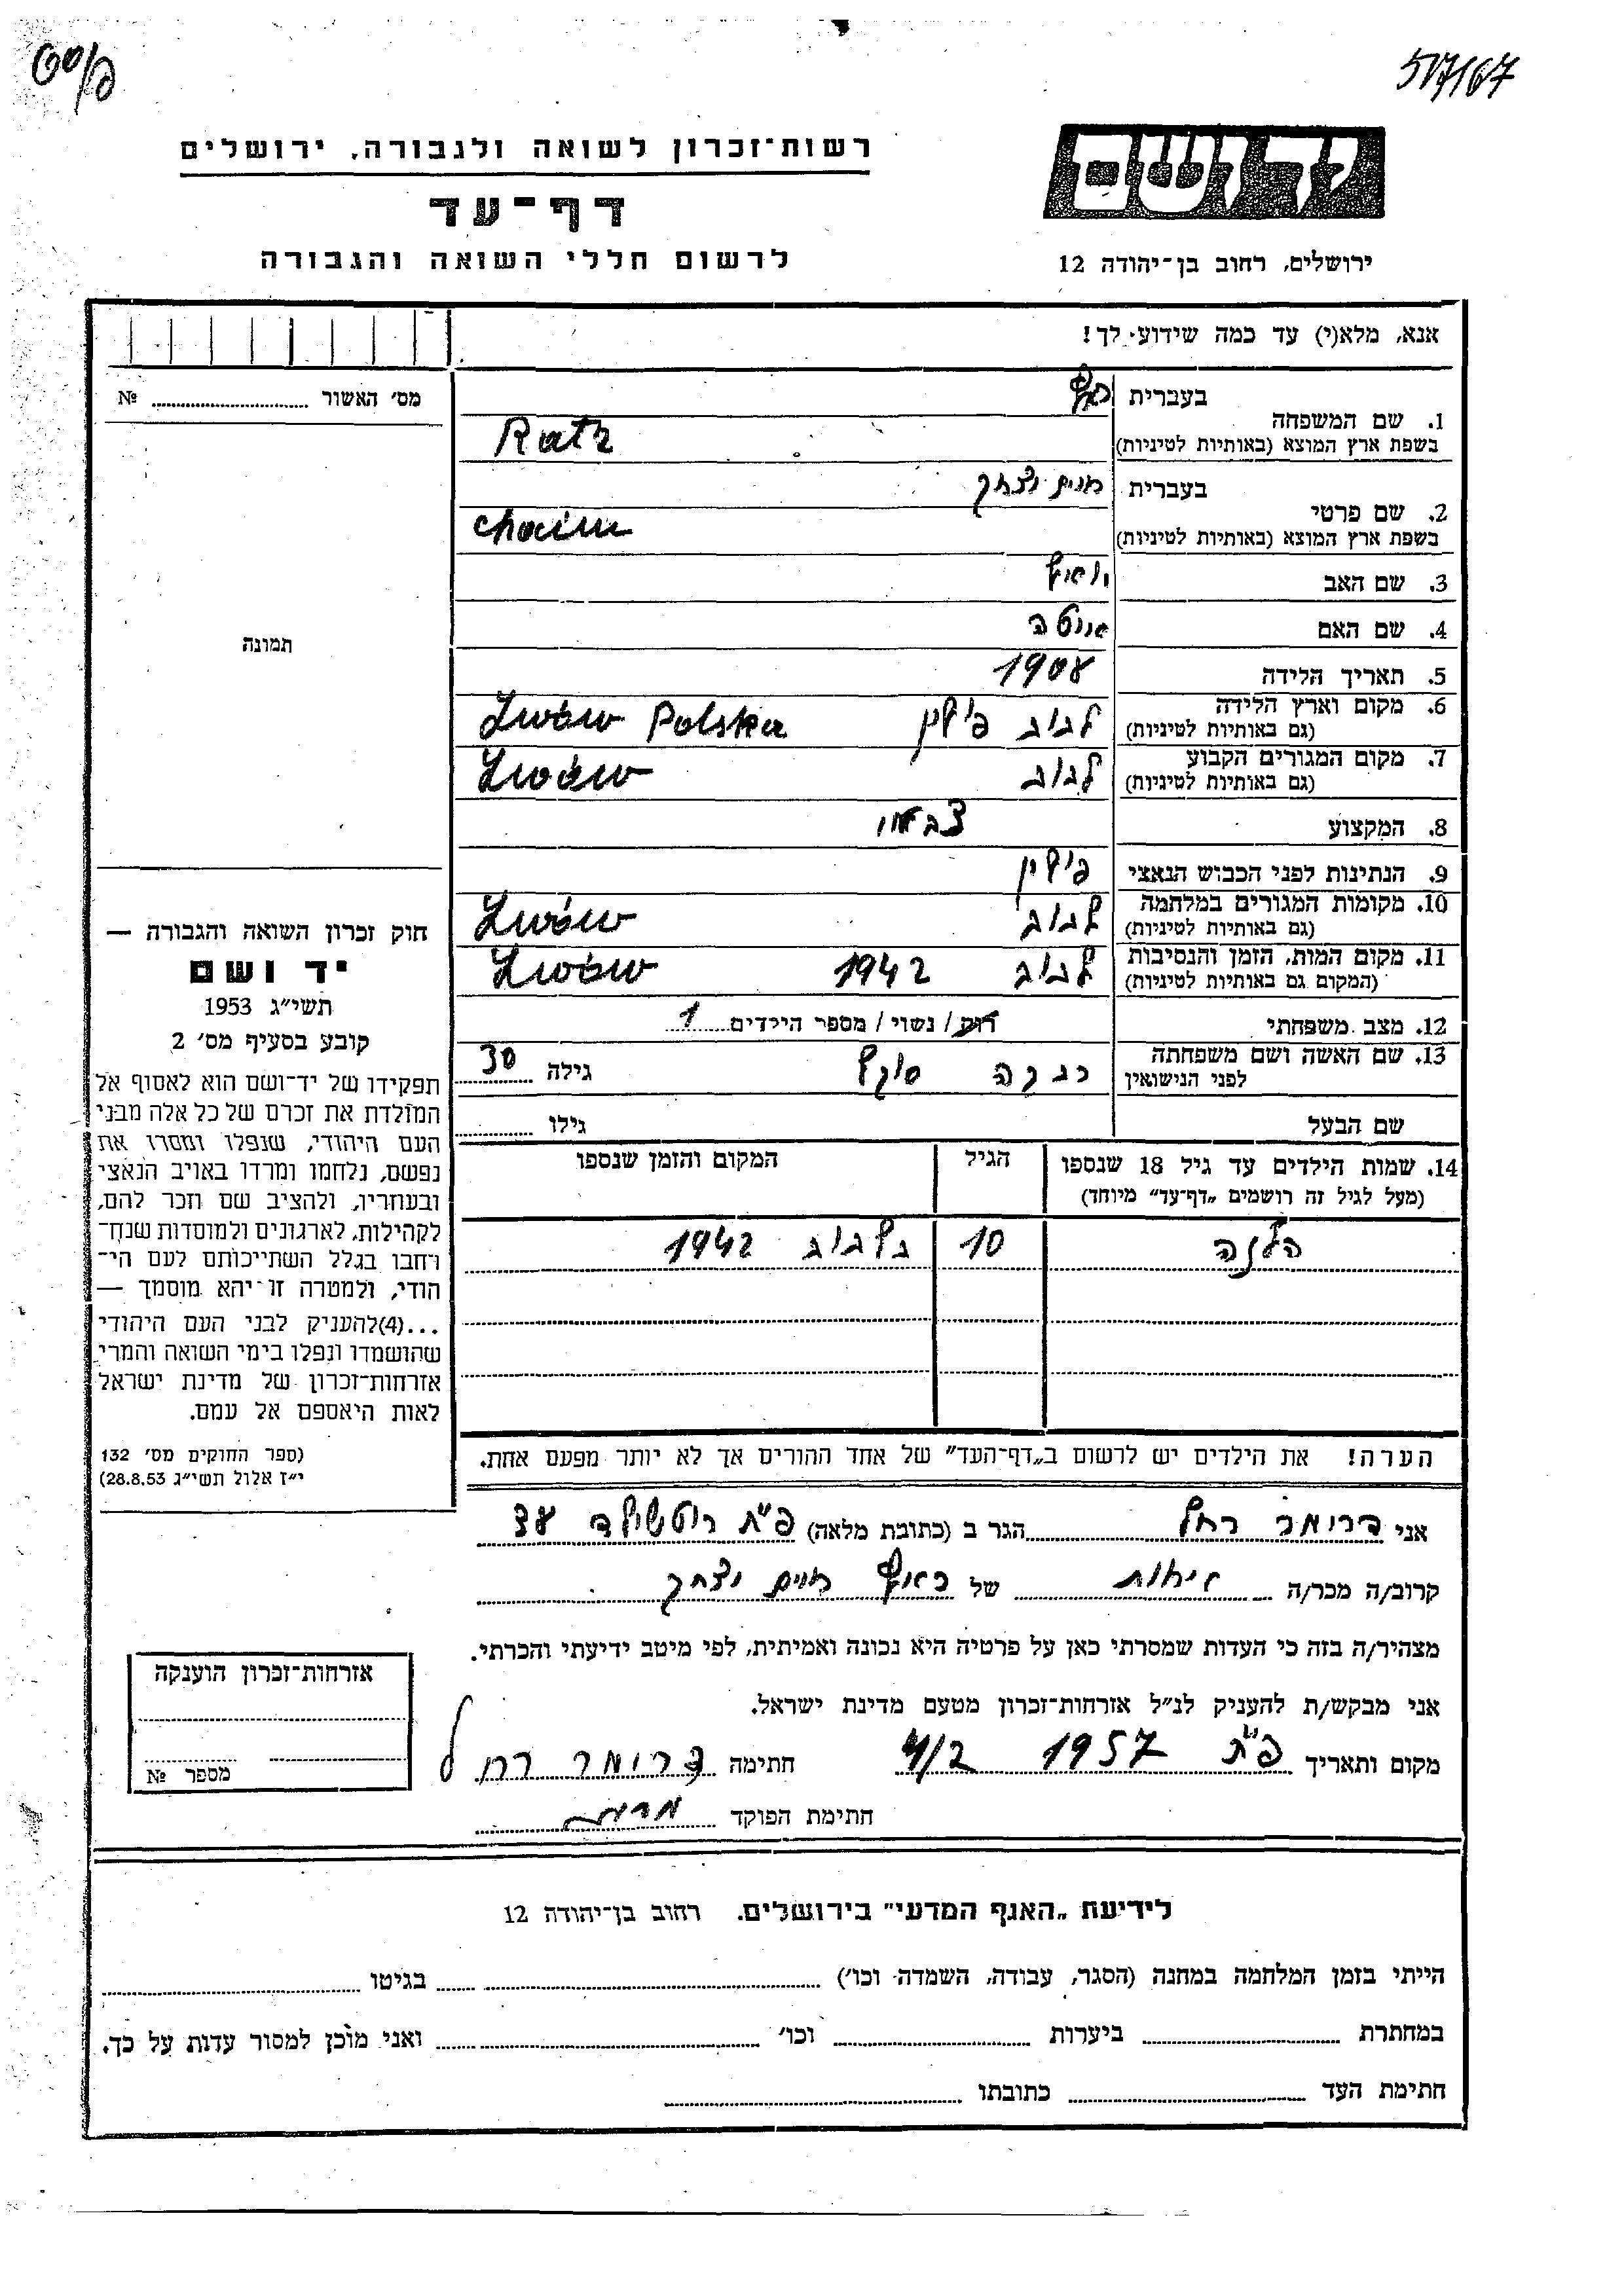 517167
רשות־זכרון לשואה ולגבורה, ירושלים
יד ושם
דף־עד
לרשום חללי השואה והגבורה
ירושלים, רחוב בן־יהודה 12
אנא, מלא(י) עד כמה שידוע לך!
מס׳ האשור № ........
1. שם המשפחה
בעברית
בשפת ארץ המוצא (באותיות לטיניות) Ratz
2. שם פרטי
בעברית חיים יצחק
בשפת ארץ המוצא (באותיות לטיניות) Chaim
3. שם האב
4. שם האם
5. תאריך הלידה 1908
6. מקום וארץ הלידה
(גם באותיות לטיניות) לבוב פולין Lwów Polska
7. מקום המגורים הקבוע
(גם באותיות לטיניות) לבוב Lwów
8. המקצוע
9. הנתינות לפני הכבוש הנאצי פולין
10. מקומות המגורים במלחמה
(גם באותיות לטיניות) לבוב Lwów
11. מקום המות, הזמן והנסיבות
(המקום גם באותיות לטיניות) לבוב 1942 Lwów
12. מצב משפחתי רוק / נשוי / מספר הילדים 1
13. שם האשה ושם משפחתה
לפני הנישואין רבקה גילה 30
שם הבעל גילו ........
14. שמות הילדים עד גיל 18 שנספו
(מעל לגיל זה רושמים „דף־עד״ מיוחד)
הגיל
המקום והזמן שנספו
הלנה 10 בלבוב 1942
הערה! את הילדים יש לרשום ב„דף־העד״ של אחד ההורים אך לא יותר מפעם אחת.
תמונה
חוק זכרון השואה והגבורה —
יד ושם
תשי״ג 1953
קובע בסעיף מס׳ 2
תפקידו של יד־ושם הוא לאסוף אל
המולדת את זכרם של כל אלה מבני
העם היהודי, שנפלו ומסרו את
נפשם, נלחמו ומרדו באויב הנאצי
ובעוזריו, ולהציב שם וזכר להם,
לקהילות, לארגונים ולמוסדות שנח־
רחבו בגלל השתייכותם לעם הי־
הודי, ולמטרה זו יהא מוסמך —
...(4)להעניק לבני העם היהודי
שהושמדו ונפלו בימי השואה והמרי
אזרחות־זכרון של מדינת ישראל
לאות היאספם אל עמם.
(ספר החוקים מס׳ 132
י״ז אלול תשי״ג 28.8.53)
אני דרומר רחל הגר ב (כתובת מלאה) פ״ת רוטשילד
קרוב/ה מכר/ה אחות של חיים יצחק
מצהיר/ה בזה כי העדות שמסרתי כאן על פרטיה היא נכונה ואמיתית, לפי מיטב ידיעתי והכרתי.
אני מבקש/ת להעניק לנ״ל אזרחות־זכרון מטעם מדינת ישראל.
מקום ותאריך פ״ת 1957 חתימה דרומר רחל
חתימת הפוקד
אזרחות־זכרון הוענקה
מספר №
לידיעת „האגף המדעי״ בירושלים, רחוב בן־יהודה 12
הייתי בזמן המלחמה במחנה (הסגר, עבודה, השמדה וכו׳) ........ בגיטו ........
במחתרת ........ ביערות ........ וכו׳ ........ ואני מוכן למסור עדות על כך.
חתימת העד ........ כתובתו ........